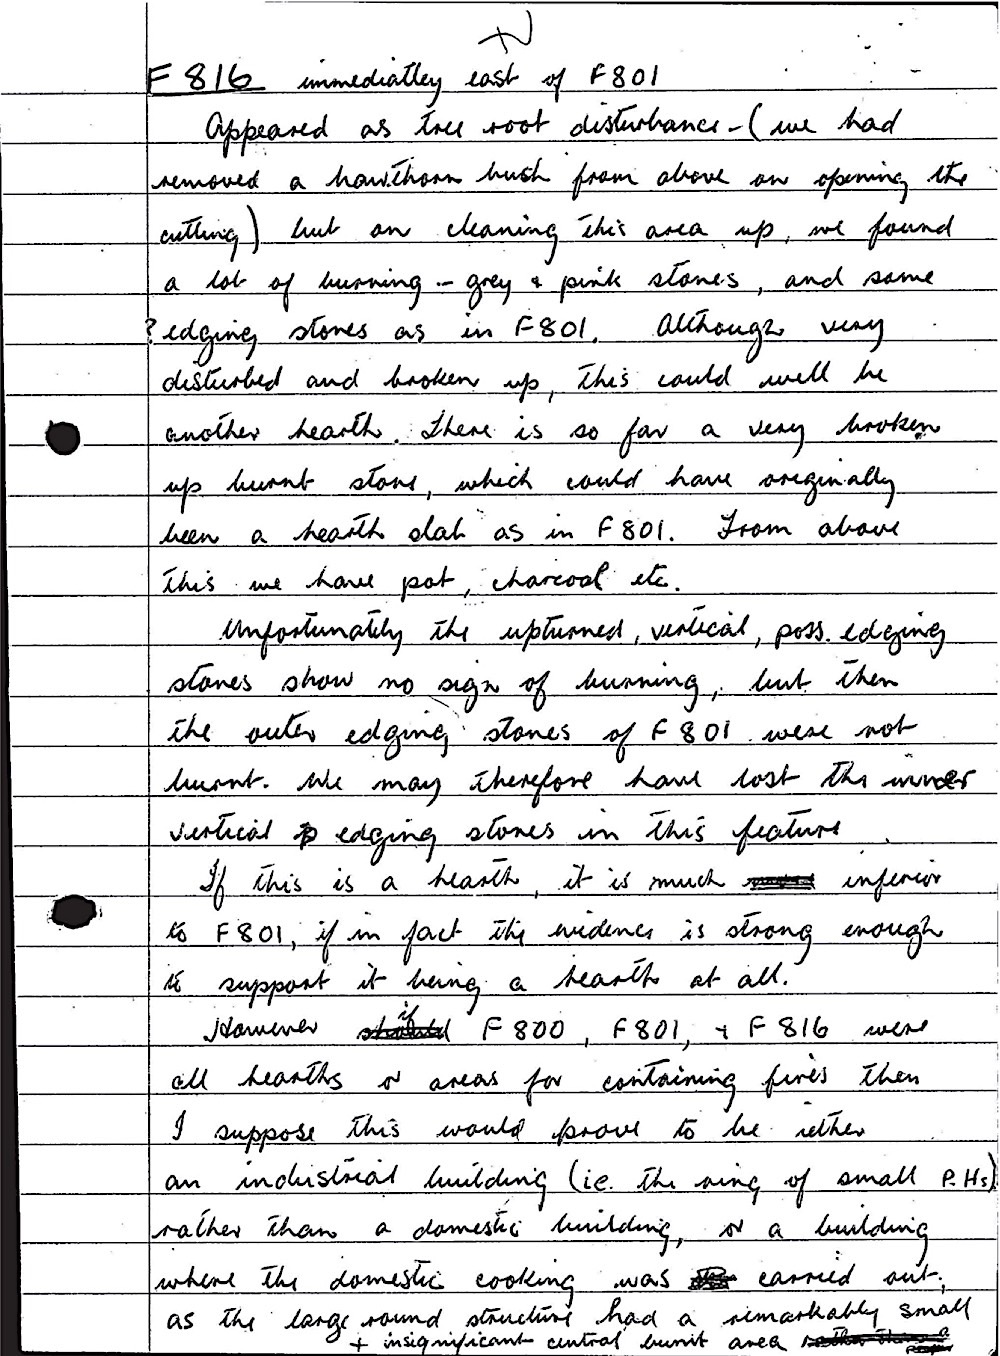 F 816 immediatley east of F801
Appeared as tree root disturbance - (we had
removed a hawthorn bush from above on opening the
cutting) but on cleaning this area up, we found
a lot of burning - grey & pink stones, and some
? edging stones as in F801. Although very
disturbed and broken up, this could well be
another hearth. There is so far a very broken
up burnt stone, which could have originally
been a hearth slab as in F801. From above
this we have pot, charcoal etc.
Unfortunately the upturned, vertical, poss. edging
stones show no sign of burning, but then
the outer edging stones of F 801 were not
burnt. We may therefore have lost the inner
vertical edging stones in this feature.
If this is a hearth, it is much inferior
to F801, if in fact the evidence is strong enough
to support it being a hearth at all.
However if F 800, F801, + F 816 were
all hearths or areas for containing fires then
I suppose this would prove to be iether
an industrial building (ie. the ring of small P.Hs)
rather than a domestic building, or a building
where the domestic cooking was carried out,
as the large round structure had a remarkably small
+ insignificant central burnt area